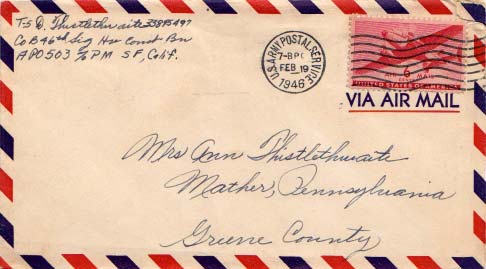 T-5 D. Thistlethwaite 33895497
Co B 46th Sig Hv Const Bn
APO 503 % PM SF, Calif.
U.S. ARMY POSTAL SERVICE
7-8 PM
FEB 19
1946
AIR MAIL
6
UNITED STATES OF AMERICA
VIA AIR MAIL
Mrs Ann Thistlethwaite
Mather, Pennsylvania
Greene County